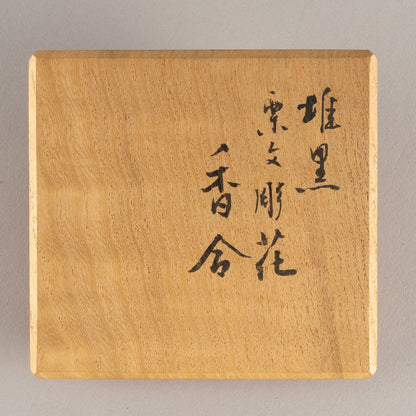 堆黒
栗文彫花
香合